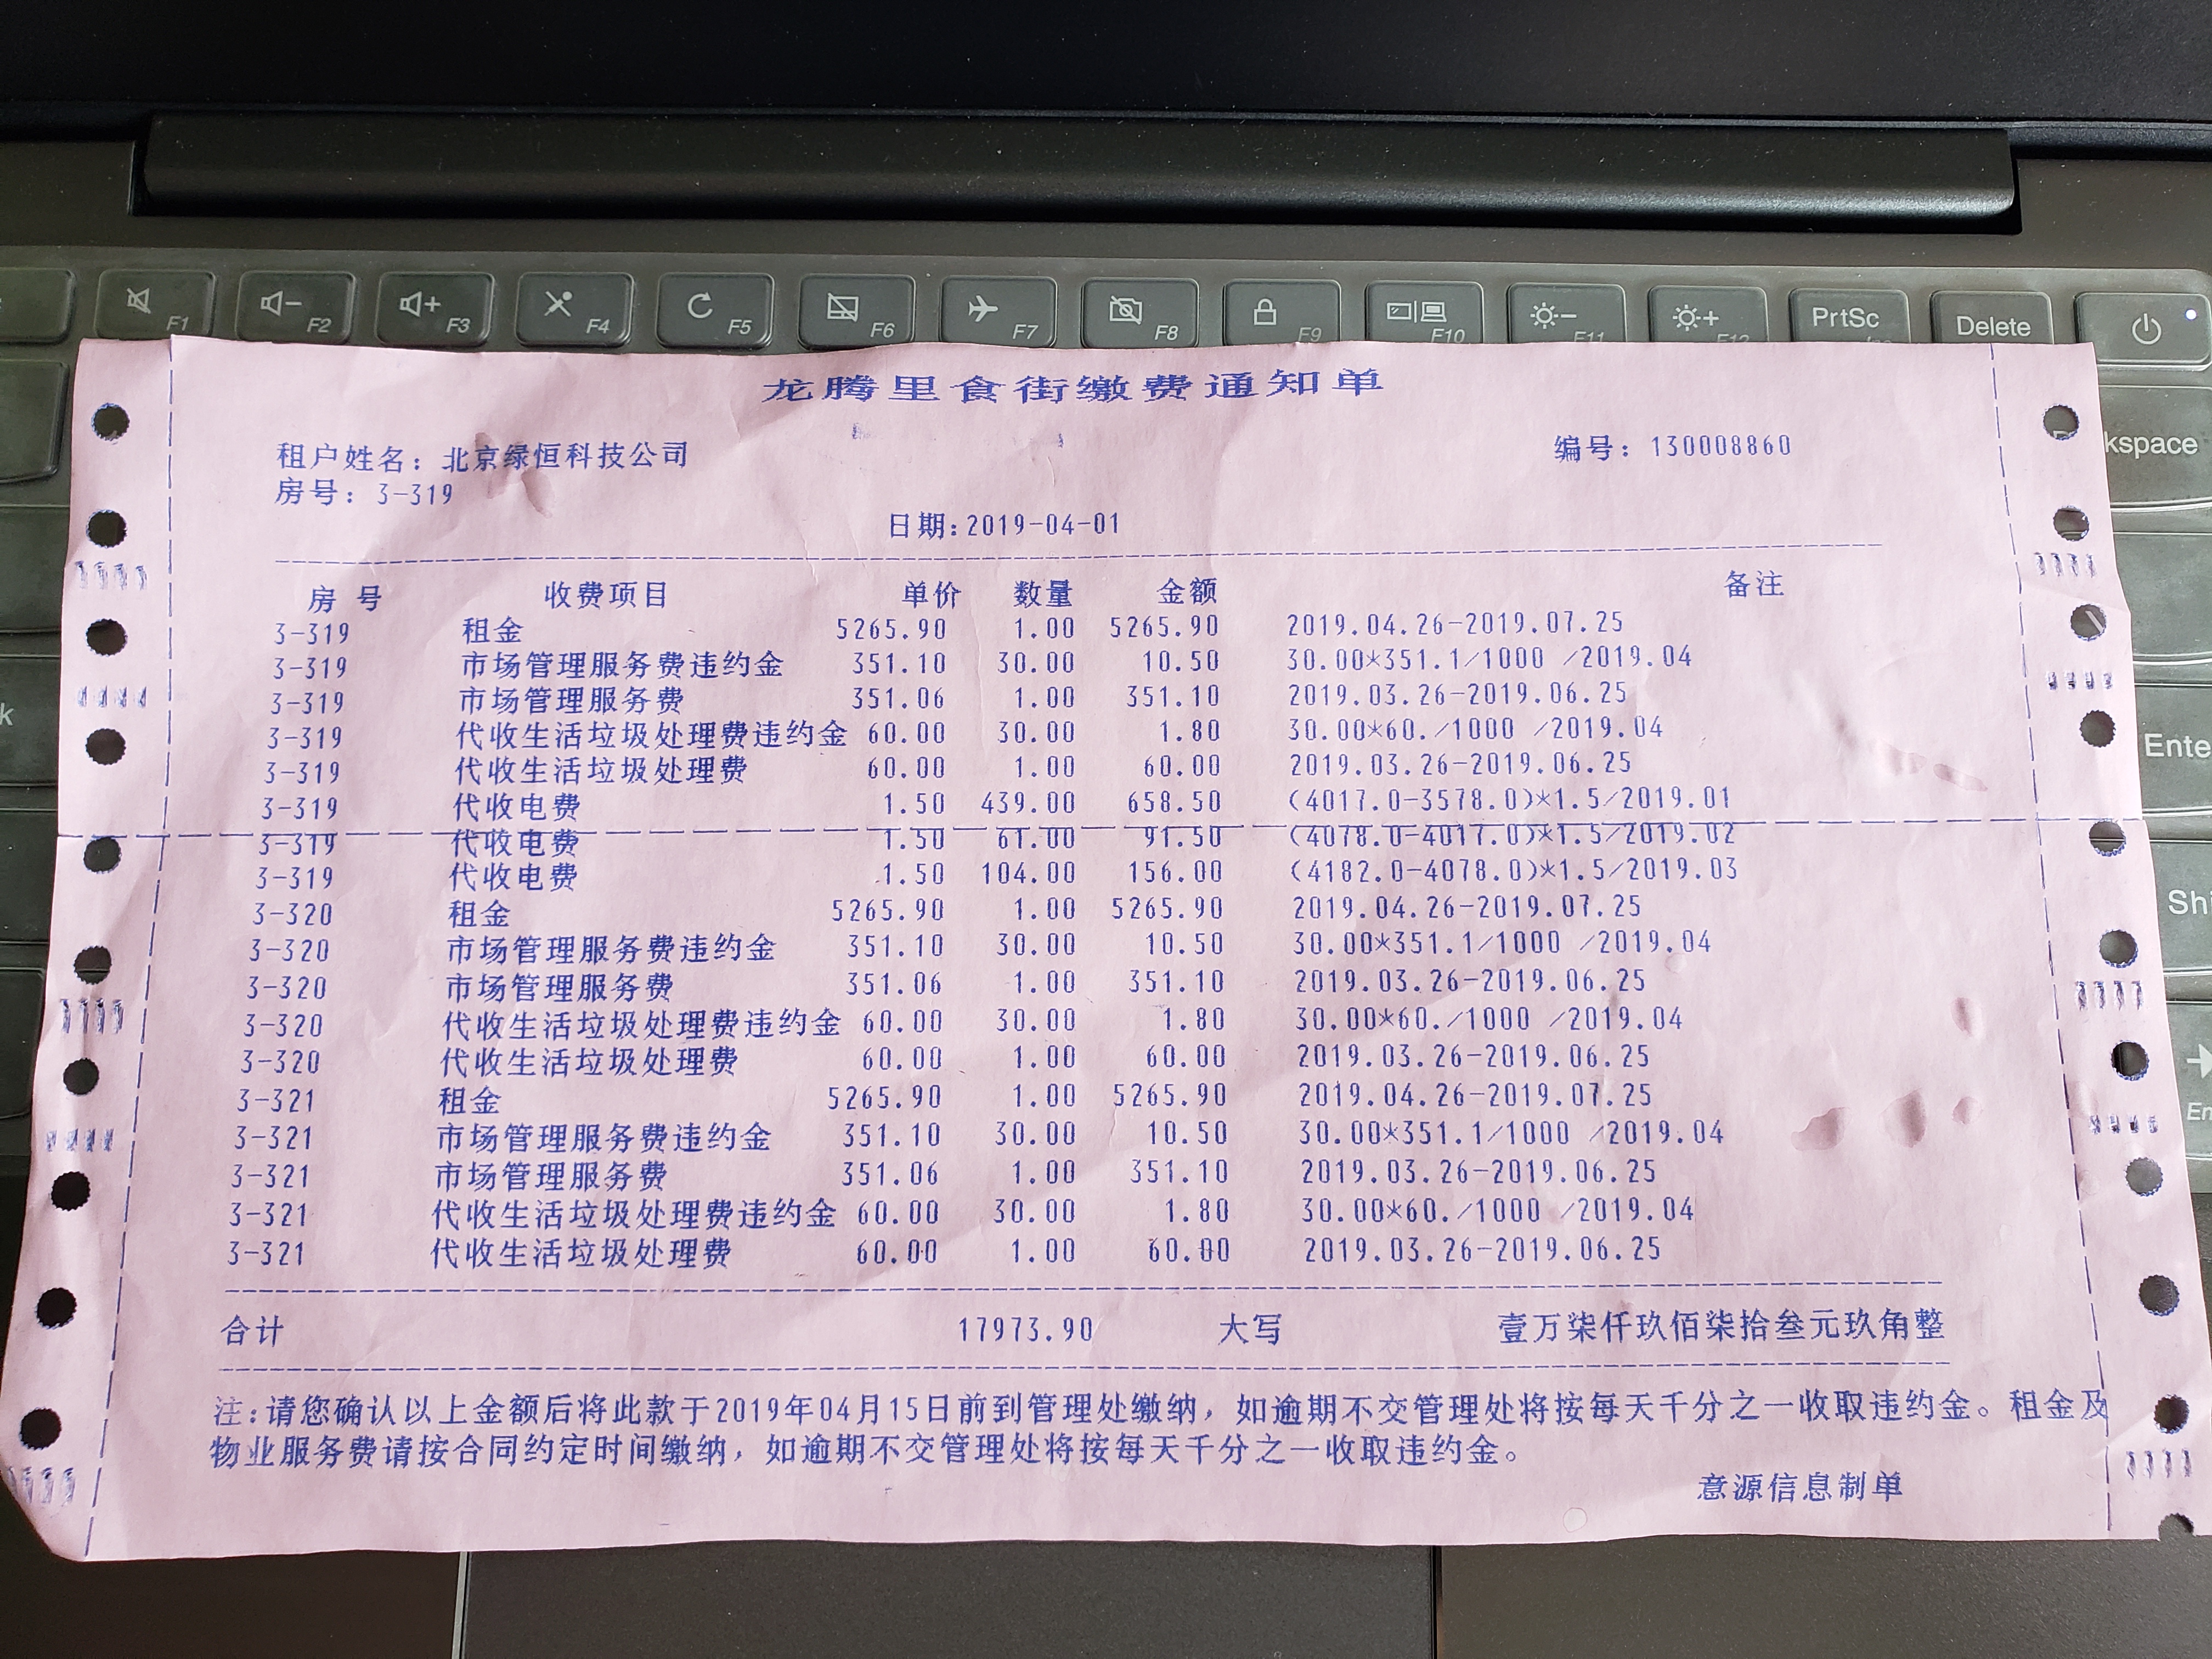 F1 F2 F3 F4 F5 F6 F7 F8 F9 F10 F11 F12 PrtSc Delete
龙腾里食街缴费通知单
租户姓名：北京绿恒科技公司 编号：130008860
房号：3-319
日期:2019-04-01
房 号 收费项目 单价 数量 金额 备注
3-319 租金 5265.90 1.00 5265.90 2019.04.26-2019.07.25
3-319 市场管理服务费违约金 351.10 30.00 10.50 30.00*351.1/1000 /2019.04
3-319 市场管理服务费 351.06 1.00 351.10 2019.03.26-2019.06.25
3-319 代收生活垃圾处理费违约金 60.00 30.00 1.80 30.00*60./1000 /2019.04
3-319 代收生活垃圾处理费 60.00 1.00 60.00 2019.03.26-2019.06.25
3-319 代收电费 1.50 439.00 658.50 (4017.0-3578.0)*1.5/2019.01
3-319 代收电费 1.50 61.00 91.50 (4078.0-4017.0)*1.5/2019.02
3-319 代收电费 1.50 104.00 156.00 (4182.0-4078.0)*1.5/2019.03
3-320 租金 5265.90 1.00 5265.90 2019.04.26-2019.07.25
3-320 市场管理服务费违约金 351.10 30.00 10.50 30.00*351.1/1000 /2019.04
3-320 市场管理服务费 351.06 1.00 351.10 2019.03.26-2019.06.25
3-320 代收生活垃圾处理费违约金 60.00 30.00 1.80 30.00*60./1000 /2019.04
3-320 代收生活垃圾处理费 60.00 1.00 60.00 2019.03.26-2019.06.25
3-321 租金 5265.90 1.00 5265.90 2019.04.26-2019.07.25
3-321 市场管理服务费违约金 351.10 30.00 10.50 30.00*351.1/1000 /2019.04
3-321 市场管理服务费 351.06 1.00 351.10 2019.03.26-2019.06.25
3-321 代收生活垃圾处理费违约金 60.00 30.00 1.80 30.00*60./1000 /2019.04
3-321 代收生活垃圾处理费 60.00 1.00 60.00 2019.03.26-2019.06.25
合计 17973.90 大写 壹万柒仟玖佰柒拾叁元玖角整
注:请您确认以上金额后将此款于2019年04月15日前到管理处缴纳，如逾期不交管理处将按每天千分之一收取违约金。租金及
物业服务费请按合同约定时间缴纳，如逾期不交管理处将按每天千分之一收取违约金。
意源信息制单
kspace
Ente
Sh
En
k